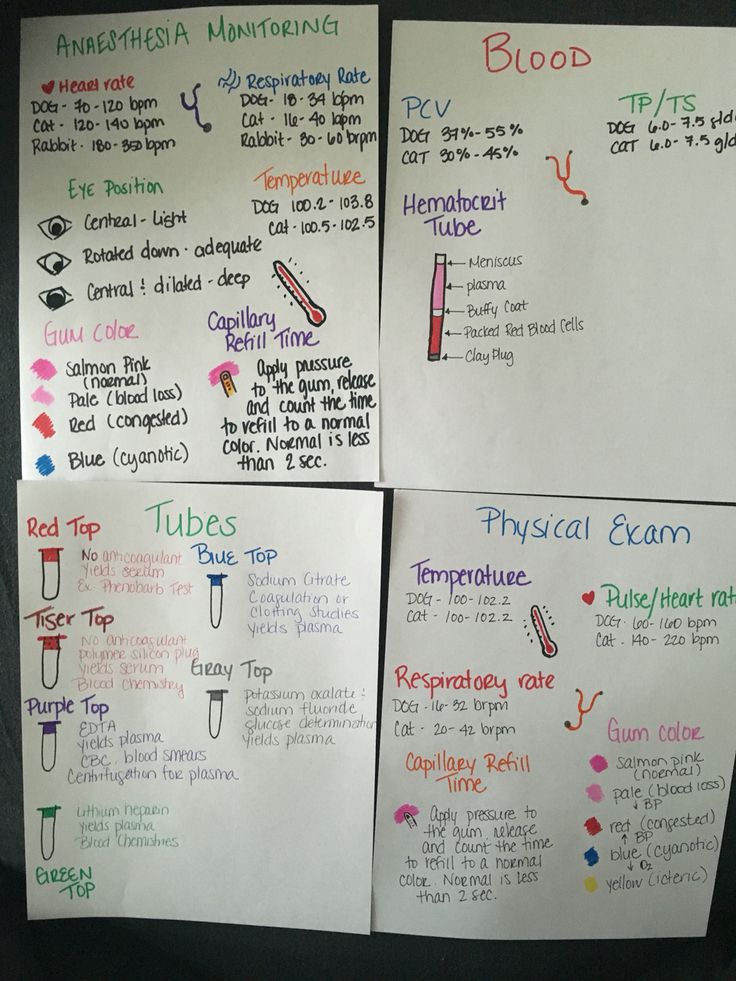 ANAESTHESIA MONITORING
Heart rate
DOG - 70-120 bpm
Cat - 120-140 bpm
Rabbit - 180-350 bpm
Respiratory Rate
DOG - 18-34 bpm
Cat - 16-40 bpm
Rabbit - 30-60 brpm
EYE POSITION
Central - Light
Rotated down - adequate
Central & dilated - deep
TEMPERATURE
DOG 100.2 - 103.8
Cat - 100.5 - 102.5
GUM COLOR
Salmon Pink
(normal)
Pale (blood loss)
Red (congested)
Blue (cyanotic)
Capillary
Refill Time
Apply pressure
to the gum, release
and count the time
to refill to a normal
color. Normal is less
than 2 sec.
BLOOD
PCV
DOG 37%-55%
CAT 30%-45%
TP/TS
DOG 6.0-7.5 g/d
CAT 6.0-7.5 g/d
Hematocrit
Tube
Meniscus
plasma
Buffy Coat
Packed Red Blood Cells
Clay Plug
Tubes
Red Top
No anticoagulant
yields serum
Ex. Phenobarb Test
Tiger Top
No anticoagulant
polymer silicon plug
yields serum
Blood Chemistry
Purple Top
EDTA
yields plasma
CBC, blood smears
Centrifugation for plasma
Lithium heparin
yields plasma
Blood Chemistries
GREEN
TOP
Blue Top
Sodium Citrate
Coagulation or
Clotting Studies
yields plasma
Gray Top
potassium oxalate &
sodium fluoride
glucose determination
yields plasma
Physical Exam
Temperature
DOG - 100-102.2
Cat - 100-102.2
Pulse/Heart rat
DOG - 60-160 bpm
Cat - 140-220 bpm
Respiratory rate
DOG - 16-32 brpm
Cat - 20-42 brpm
Capillary Refill
Time
Apply pressure to
the gum, release
and count the time
to refill to a normal
color. Normal is less
than 2 sec.
Gum color
salmon pink
(normal)
pale (blood loss)
↓ BP
red (congested)
↑ BP
blue (cyanotic)
↓ O2
yellow (icteric)